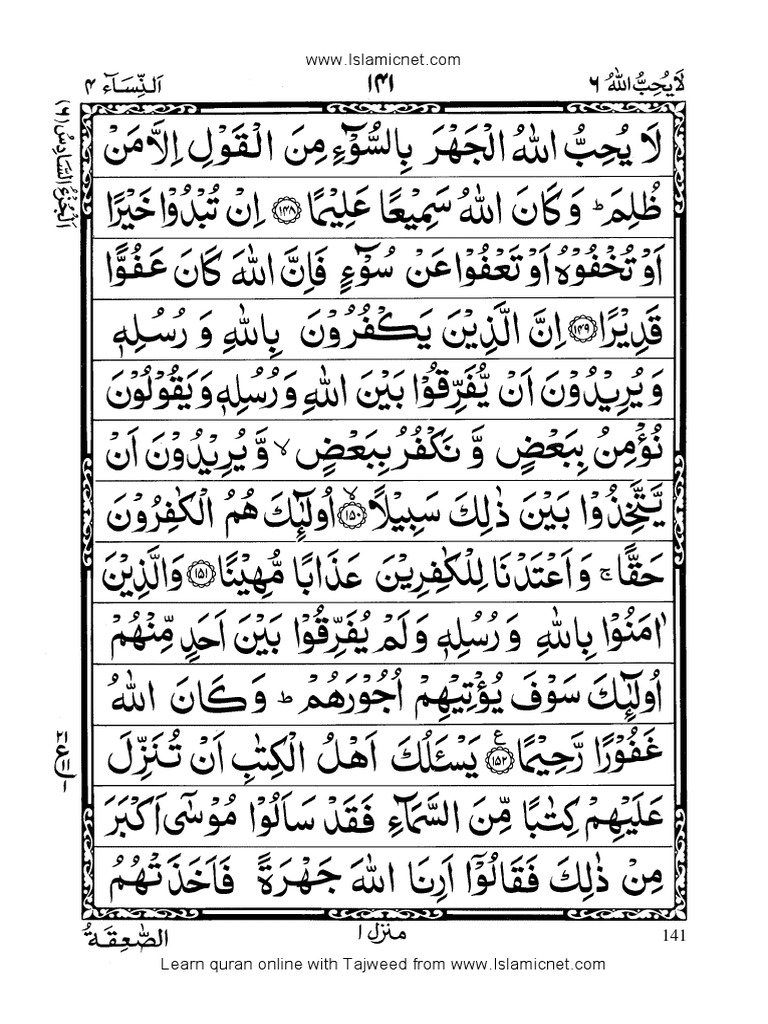 www.Islamicnet.com
لَا يُحِبُّ اللهُ ٦ ١٤١ اَلنِّسَآء ٤
اَلْجُزْءُ السَّادِسُ (٦)
لَا يُحِبُّ اللهُ الْجَهْرَ بِالسُّوْٓءِ مِنَ الْقَوْلِ اِلَّا مَنْ
ظُلِمَ ؕ وَكَانَ اللهُ سَمِيْعًا عَلِيْمًا ۝١٤٨ اِنْ تُبْدُوْا خَيْرًا
اَوْ تُخْفُوْهُ اَوْ تَعْفُوْا عَنْ سُوْٓءٍ فَاِنَّ اللهَ كَانَ عَفُوًّا
قَدِيْرًا ۝١٤٩ اِنَّ الَّذِيْنَ يَكْفُرُوْنَ بِاللهِ وَ رُسُلِهٖ
وَيُرِيْدُوْنَ اَنْ يُّفَرِّقُوْا بَيْنَ اللهِ وَرُسُلِهٖ وَيَقُوْلُوْنَ
نُؤْمِنُ بِبَعْضٍ وَّ نَكْفُرُ بِبَعْضٍ ۙ وَّ يُرِيْدُوْنَ اَنْ
يَّتَّخِذُوْا بَيْنَ ذٰلِكَ سَبِيْلًا ۙ۝١٥٠ اُولٰٓئِكَ هُمُ الْكٰفِرُوْنَ
حَقًّا ۚ وَاَعْتَدْنَا لِلْكٰفِرِيْنَ عَذَابًا مُّهِيْنًا ۝١٥١ وَالَّذِيْنَ
اٰمَنُوْا بِاللهِ وَ رُسُلِهٖ وَلَمْ يُفَرِّقُوْا بَيْنَ اَحَدٍ مِّنْهُمْ
اُولٰٓئِكَ سَوْفَ يُؤْتِيْهِمْ اُجُوْرَهُمْ ؕ وَكَانَ اللهُ
غَفُوْرًا رَّحِيْمًا ۝١٥٢ ع يَسْـَٔلُكَ اَهْلُ الْكِتٰبِ اَنْ تُنَزِّلَ
عَلَيْهِمْ كِتٰبًا مِّنَ السَّمَآءِ فَقَدْ سَاَلُوْا مُوْسٰٓى اَكْبَرَ
مِنْ ذٰلِكَ فَقَالُوْٓا اَرِنَا اللهَ جَهْرَةً فَاَخَذَتْهُمُ
141 منزل ١ الصّٰعِقَةُ
Learn quran online with Tajweed from www.Islamicnet.com